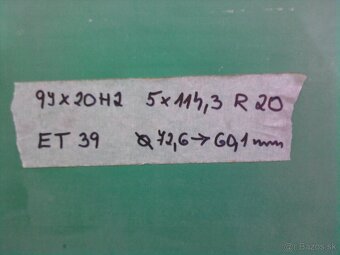 9Jx20H2 5x114,3 R20
ET 39 Ø72,6→60,1mm
©Bazos.sk